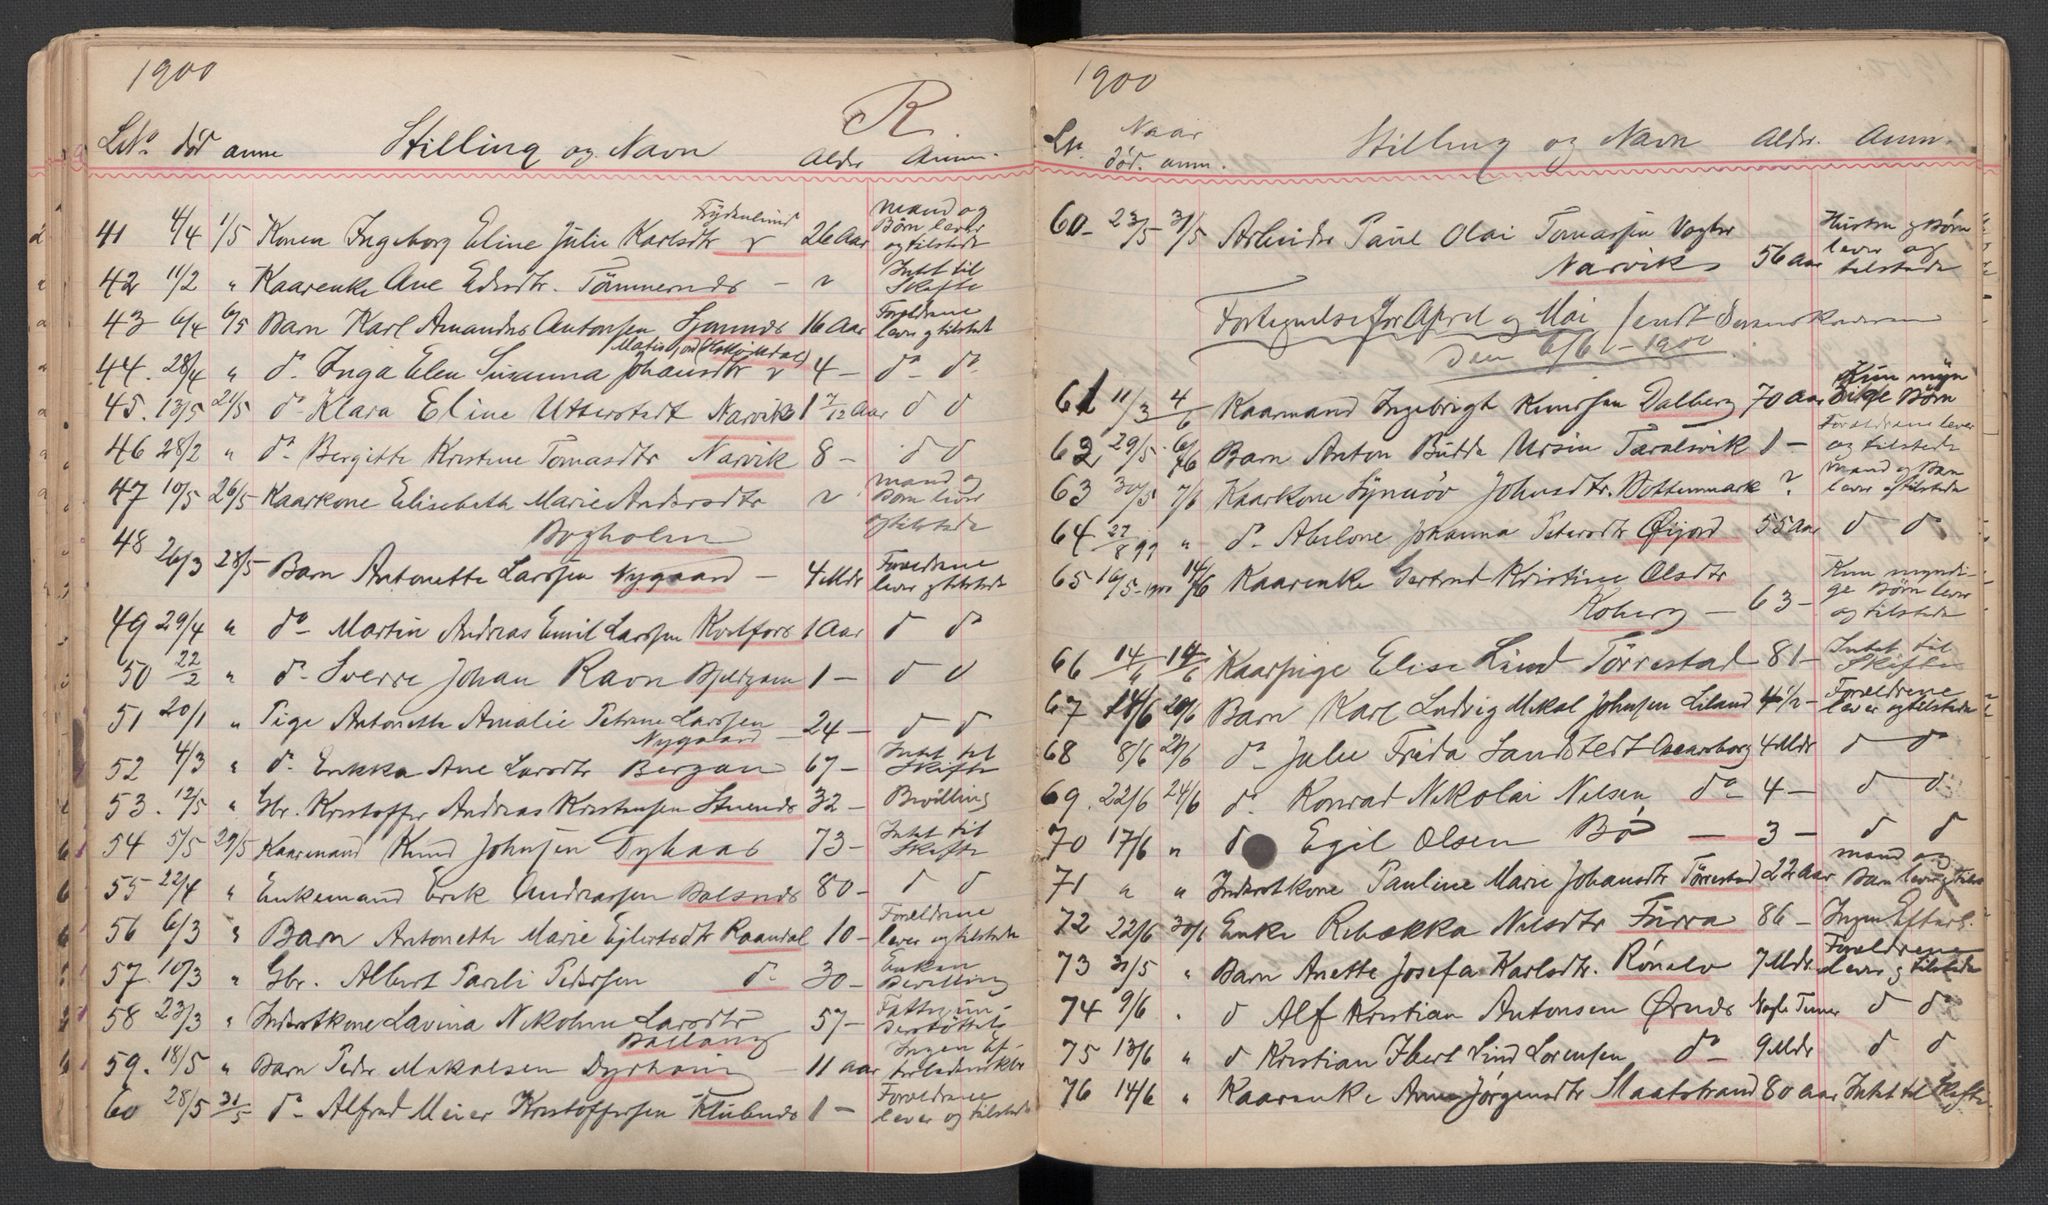 1900
R.
LNo. død anm Stilling og Navn Alder Anm.
41 4/4 1/5 Konen Ingeborg Eline Julie Karlsdtr Frydenlund 26 Aar mand og Børn lever og tilstede
42 11/2 " Kaarenke Ane Edisdtr. Tömmernes - Intet til Skifte
43 6/4 6/5 Barn Karl Amandus Antonsen 16 Aar Foreldrene lever og tilstede
44. 28/4 " do. Inga Elen Susanna Johansdtr 4 - do- do.
45. 13/5 21/5 do. Klara Eline Utterstedt Narvik 1 7/12 Aar d d
46 28/2 " do. Bergitte Kristine Tomasdtr Narvik 8 - d d
47 10/5 26/5 Kaarkone Elisebeth Marie Andersdtr mand og Børn lever og tilstede
Bogholm
48 26/3 28/5 Barn Antonette Larssen Nygaard - 4 Mdr Foreldrene lever og tilstede
49 29/4 " do- Martin Andreas Emil Larssen 1 Aar d do
50 22/2 " do- Sverre Johan Ravn 1 - d d
51 20/1 " Pige Antonette Amalie Petrine Larssen
Nygaard - 24 - d d
52 4/3 " do. Enkka Ane Larsdtr Bergan 67 - Intet til Skifte
53. 12/5 " Gbr. Kristoffer Andreas Kristensen 32 - Bevilling
54 5/5 29/5 Kaarmand Knud Johnsen Dyhaas 73 - Intet til Skifte
55 22/4 " Enkemand Erik Andreassen Balsnes 80 - d d
56 6/3 " Barn Antonette Marie Ejlertsdtr Raandal 10 - Foreldrene lever og tilstede
57. 10/3 " Gbr. Albert Parli Pedersen do- 30 - Enken Bevilling
58 23/3 " Inderstkone Lavina Nikoline Larsdtr 57 - Fattigunderstöttelse
Ballang
59. 18/5 " Barn Peder Mikalsen Dyrhaug - 11 aar Ingen Efterladenskber
60 28/5 31/5 do- Alfred Meier Kristoffersen Klubnes 1 - Foreldrene lever og tilstede
1900
LN. Naar død. anm. Stilling og Navn Aldr. Anm.
60- 23/5 31/5 Arbeider Paul Olai Tomassen Vogter
Narvik 56 aar Hustru og Børn lever og tilstede
Fortegnelse for April og Mai sendt Sorenskriveren
den 6/6 - 1900.
61 11/3 4/6 Kaarmand Ingebrigt Knudsen Dalberg 70 aar Kun myndige Børn
62 29/5 6/6 Barn Anton Budda Ursin Taralsvik 1 - Foreldrene lever og tilstede
63 30/5 7/6 Kaarkone Synnöv Johnsdtr. Bottenmark ? mand og Barn lever og tilstede
64 27/8 99 " do. Abelone Johanna Petersdtr Øijord 55 Aar d d
65 16/5-1900 14/6 Kaarenke Gertrud Kristine Olsdtr
Koberg - 63 - Kun myndige Børn lever og tilstede
66 14/6 14/6 Kaarpige Elise Lind Törrestad 81 - Intet til Skifte
67 14/6 20/6 Barn Karl Ludvig Mikal Johnsen Liland 4 1/2 - Foreldrene lever og tilstede
68 8/6 20/6 do Julie Frida Sandstedt Oscarsborg 4 Mdr d do
69. 22/6 24/6 do. Konrad Nikolai Nilsen do- 4 - d d
70 17/6 " d Egil Olsen Bö - 3 - d d
71 " " Inderstkone Pauline Marie Johansdtr Törrestad 22 Aar mand og Barn lever og tilstede
72 22/6 30/6 Enke Rebækka Nilsdtr Furra 86 - Ingen Efterl.
73 31/5 " Barn Anette Josefa Karlsdtr. Rönelv 7 Mdr Foreldrene lever og tilstede
74 9/6 . d Alf Kristian Antonsen Ørnes Nogle Timer d do
75 13/6 " d Kristian Ibert Lind Lorensen do- 9 Mdr d d
76 14/6 " Kaarenke Anne Jørgensdtr Maatstrand 80 aar Intet til Skifte